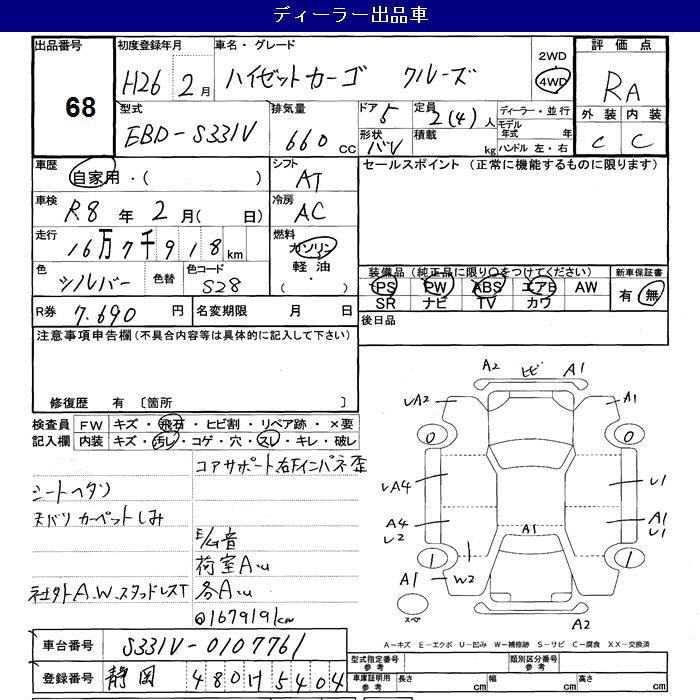 ディーラー出品車
出品番号
68
初度登録年月
H26 2月
車名・グレード
ハイゼットカーゴ クルーズ
2WD
4WD
評価点
RA
外装 内装
C C
型式
EBD-S331V
排気量
660 cc
ドア 5
形状 バV
定員
2(4)人
積載
kg
ディーラー・並行
モデル年式 年
ハンドル 左・右
車歴
自家用・( )
シフト
AT
セールスポイント (正常に機能するものに限ります)
車検
R8年 2月( 日)
冷房
AC
走行
16万7千918km
燃料
ガソリン
軽油
( ・ )
色
シルバー
色替
色コード
S28
装備品(純正品に限り○をつけてください)
PS PW ABS エアB AW
SR ナビ TV カワ
新車保証書
有 無
R券 7.690円
名変期限 月 日
後日品
注意事項申告欄(不具合内容等は具体的に記入して下さい)
修復歴 有 〔箇所
検査員記入欄
FW キズ・飛石・ヒビ割・リペア跡・×要
内装 キズ・汚レ・コゲ・穴・スレ・キレ・破レ
コアサポート右下インパネ歪
シートヘタリ
天バリ カーペットしみ
E/G音
荷室Au
社外A.W.スタッドレスT
各Au
◎167919km
A2 ヒビ A1
UA2 A1
0 0
UA4 U1
A4 A1 A1
U2 U1
1 1
A1 W2
スペア
A2
A-キズ E-エクボ U-凹み W-補修跡 S-サビ C-腐食 XX-交換済
車台番号 S331V-0107761
登録番号 静岡 480 け 5404
型式指定番号 参考
類別区分番号 参考
車庫証明用 参考
長さ cm
幅 cm
高さ cm